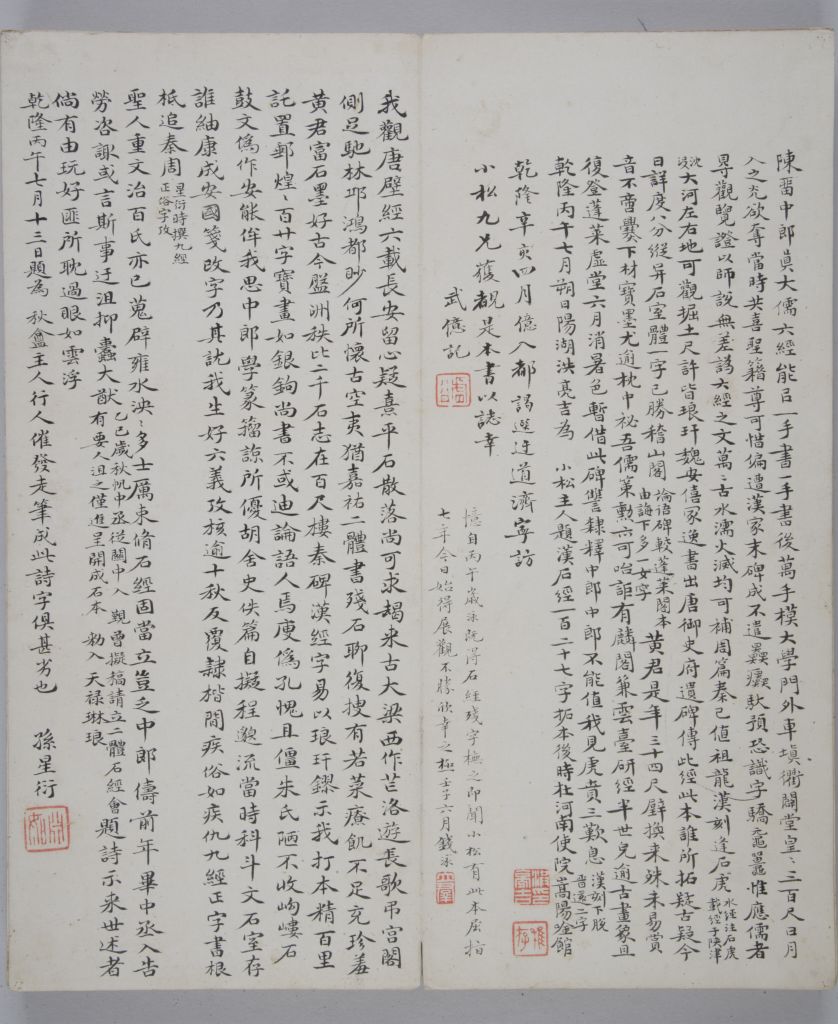 陳留中郎真大儒六經能以一手書一手書後萬手模大學門外車塡衢闢堂皇〻三百尺日月
入之光欲奪當時共喜聖籍尊可惜偏遭漢家末碑成不遣
觀覽證以師說無差譌六經之文萬〻古水濡火滅均可補周篇秦已値祖龍漢刻逢石虎
水經注石虎載經于陝津
沈沒大河左右地可觀掘土尺許皆琅玕魏安僖冢逸書出唐御史府遺碑傳此經此本誰所拓疑古疑今
日詳度八分縱昇石室體一字已勝稽山閣
論語碑較蓬萊閣本由誨下多一女字
黃君是年三十四尺璧換來殊未易賞
音不啻爨下材寶墨尤逾枕中祕吾儒策勳亦可咍詎有麟閣兼雲臺研經半世兒逾古畫篆且
復登蓬萊虛堂六月消暑色暫借此碑讐隸釋中郎中郎不能值我見虎賁三歎息
漢刻下脫音還二字
乾隆丙午七月朔日陽湖洪亮吉為 小松主人題漢石經一百二十七字拓本後時杜河南使院嵩陽唫館
乾隆辛亥四月億入都謁選迂道濟寧訪
小松九兄獲觀是本書以誌幸
武億記
憶自丙午歲泳既得石經殘字橅之即聞小松有此本屈指
七年今日始得展觀不勝欣幸之極壬子六月錢泳
我觀唐壁經六載長安留心疑熹平石散落尚可求朅來古大梁西作芒洛遊長歌弔宮闕
側足馳林邱鴻都眇何所懷古空夷猶嘉祐二體書殘石聊復搜有若菜療飢不足充珍羞
黃君富石墨好古今盤洲秩比二千石志在百尺樓秦碑漢經字易以琅玕鏐示我打本精百里
託置郵煌〻百廿字寶畫如銀鉤尚書不或迪論語人焉廋偽孔愧且僵朱氏陋不收岣嶁石
鼓文偽作安能侔我思中郎學篆籀諒所優胡舍史佚篇自擬程邈流當時科斗文石室存
誰紬康成安國箋改字乃其訧我生好六義攷核逾十秋反覆隸楷間疾俗如疾仇九經正字書根
柢追秦周
星衍時撰九經正俗字攷
聖人重文治百氏亦已蒐辟雍水泱〻多士厲束脩石經固當立豈之中郎儔前年畢中丞入告
勞咨諏或言斯事迂沮抑蠹大猷
乙巳歲秋帆中丞從關中入覲曾擬稿請立二體石經會
有要人沮之僅進呈開成石本 勑入天祿琳琅
題詩示來世述者
倘有由玩好匪所耽過眼如雲浮
乾隆丙午七月十三日題為 秋盦主人行人催發走筆成此詩字俱甚劣也 孫星衍